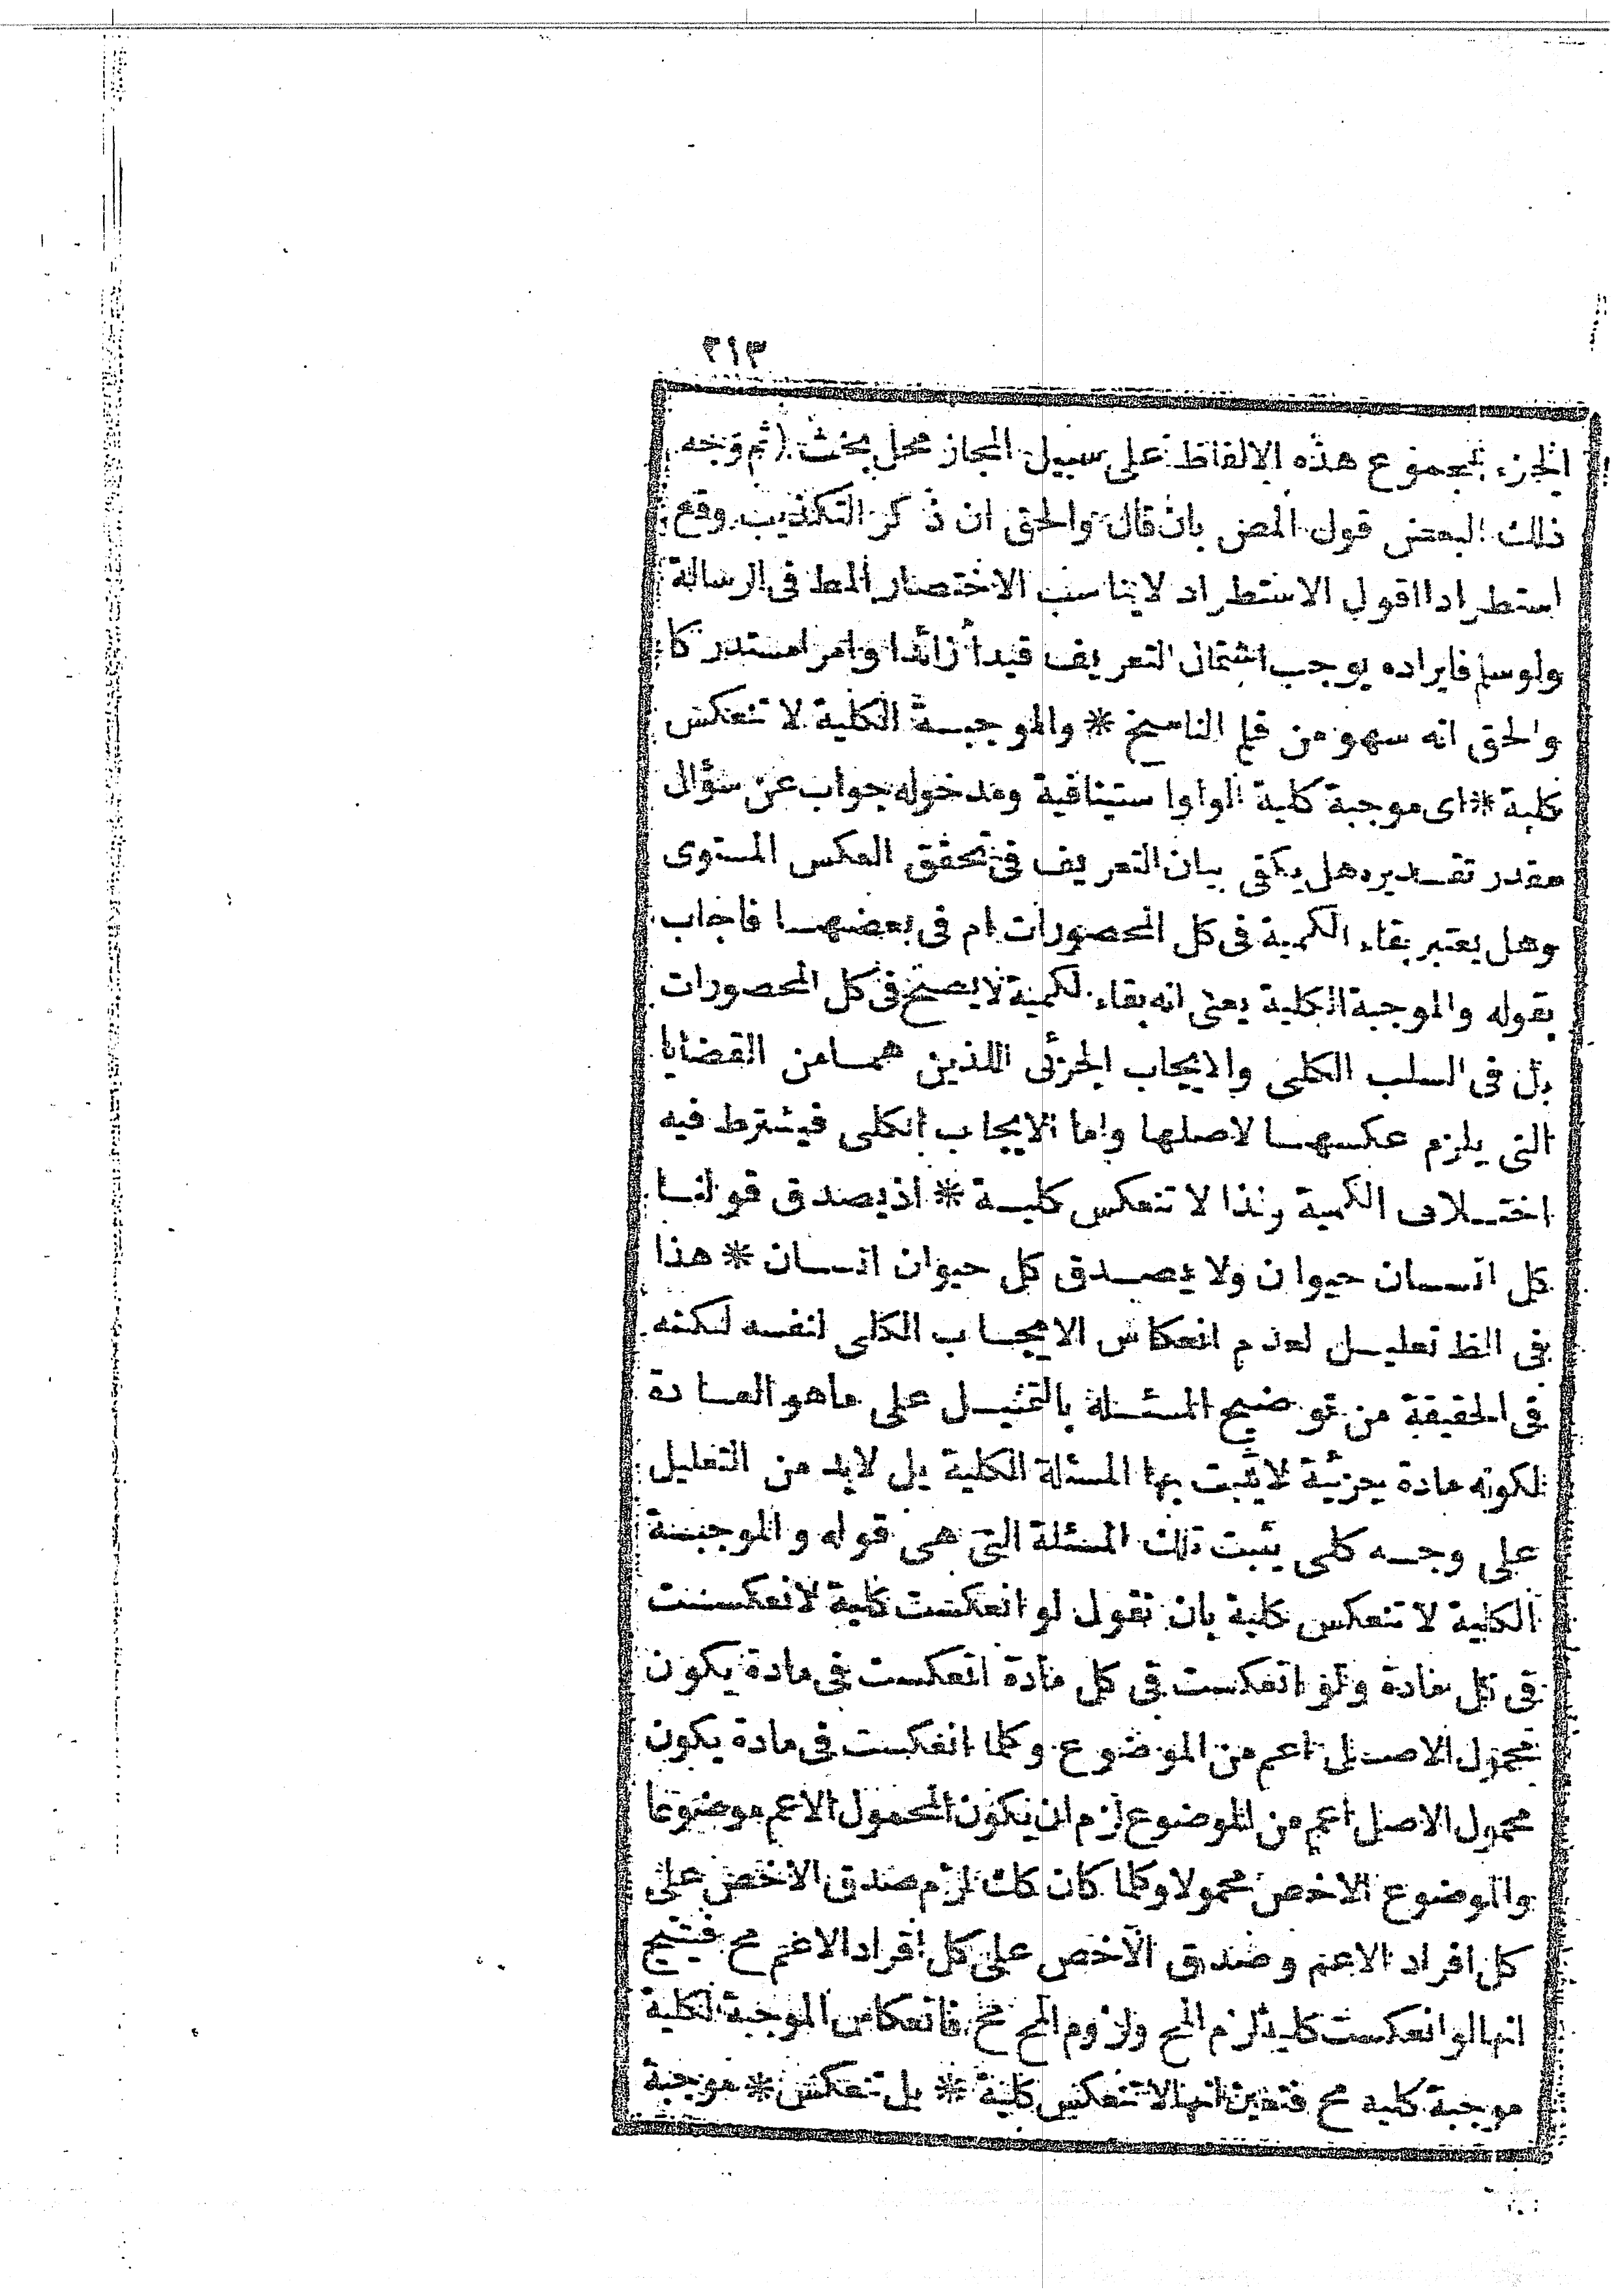 ٢١٣
الجزء بمجموع هذه الالفاظ على سبيل المجاز محل بحث (ثم وجه
ذلك البعض قول المص بان قال والحق ان ذكر التكذيب وقع
استطرادا اقول الاستطراد لا يناسب الاختصار المط فى الرسالة
ولو سلم فايراده يوجب اشتمال التعريف قيدا زائدا وامرا مستدركا
والحق انه سهو من قلم الناسخ * والموجبة الكلية لا تنعكس
كلية * اى موجبة كلية الواو استينافية ومدخوله جواب عن سؤال
مقدر تقديره هل يكفى بيان التعريف فى تحقق العكس المستوى
وهل يعتبر بقاء الكمية فى كل المحصورات ام فى بعضها فاجاب
بقوله والموجبة الكلية يعنى انه بقاء الكمية لا يصح فى كل المحصورات
بل فى السلب الكلى والايجاب الجزئى اللذين هما من القضايا
التى يلزم عكسها لاصلها واما الايجاب الكلى فيشترط فيه
اختلاف الكمية ولذا لا تنعكس كلية * اذ يصدق قولنا
كل انسان حيوان ولا يصدق كل حيوان انسان * هذا
فى الظ تعليل لعدم انعكاس الايجاب الكلى لنفسه لكنه
فى الحقيقة من توضيح المسئلة بالتمثيل على ما هو العادة
لكونه مادة جزئية لا يثبت بها المسئلة الكلية بل لا بد من التعليل
على وجه كلى يثبت تلك المسئلة التى هى قوله والموجبة
الكلية لا تنعكس كلية بان نقول لو انعكست كلية لانعكست
فى كل مادة ولو انعكست فى كل مادة انعكست فى مادة يكون
محمول الاصل اعم من الموضوع وكلما انعكست فى مادة يكون
محمول الاصل اعم من الموضوع لزم ان يكون المحمول الاعم موضوعا
والموضوع الاخص محمولا وكلما كان كك لزم صدق الاخص على
كل افراد الاعم وصدق الاخص على كل افراد الاعم مح فينتج
انها لو انعكست كلية لزم المح ولزوم المح مح فانعكاس الموجبة الكلية
موجبة كلية مح فتعين انها لا تنعكس كلية * بل تنعكس * موجبة